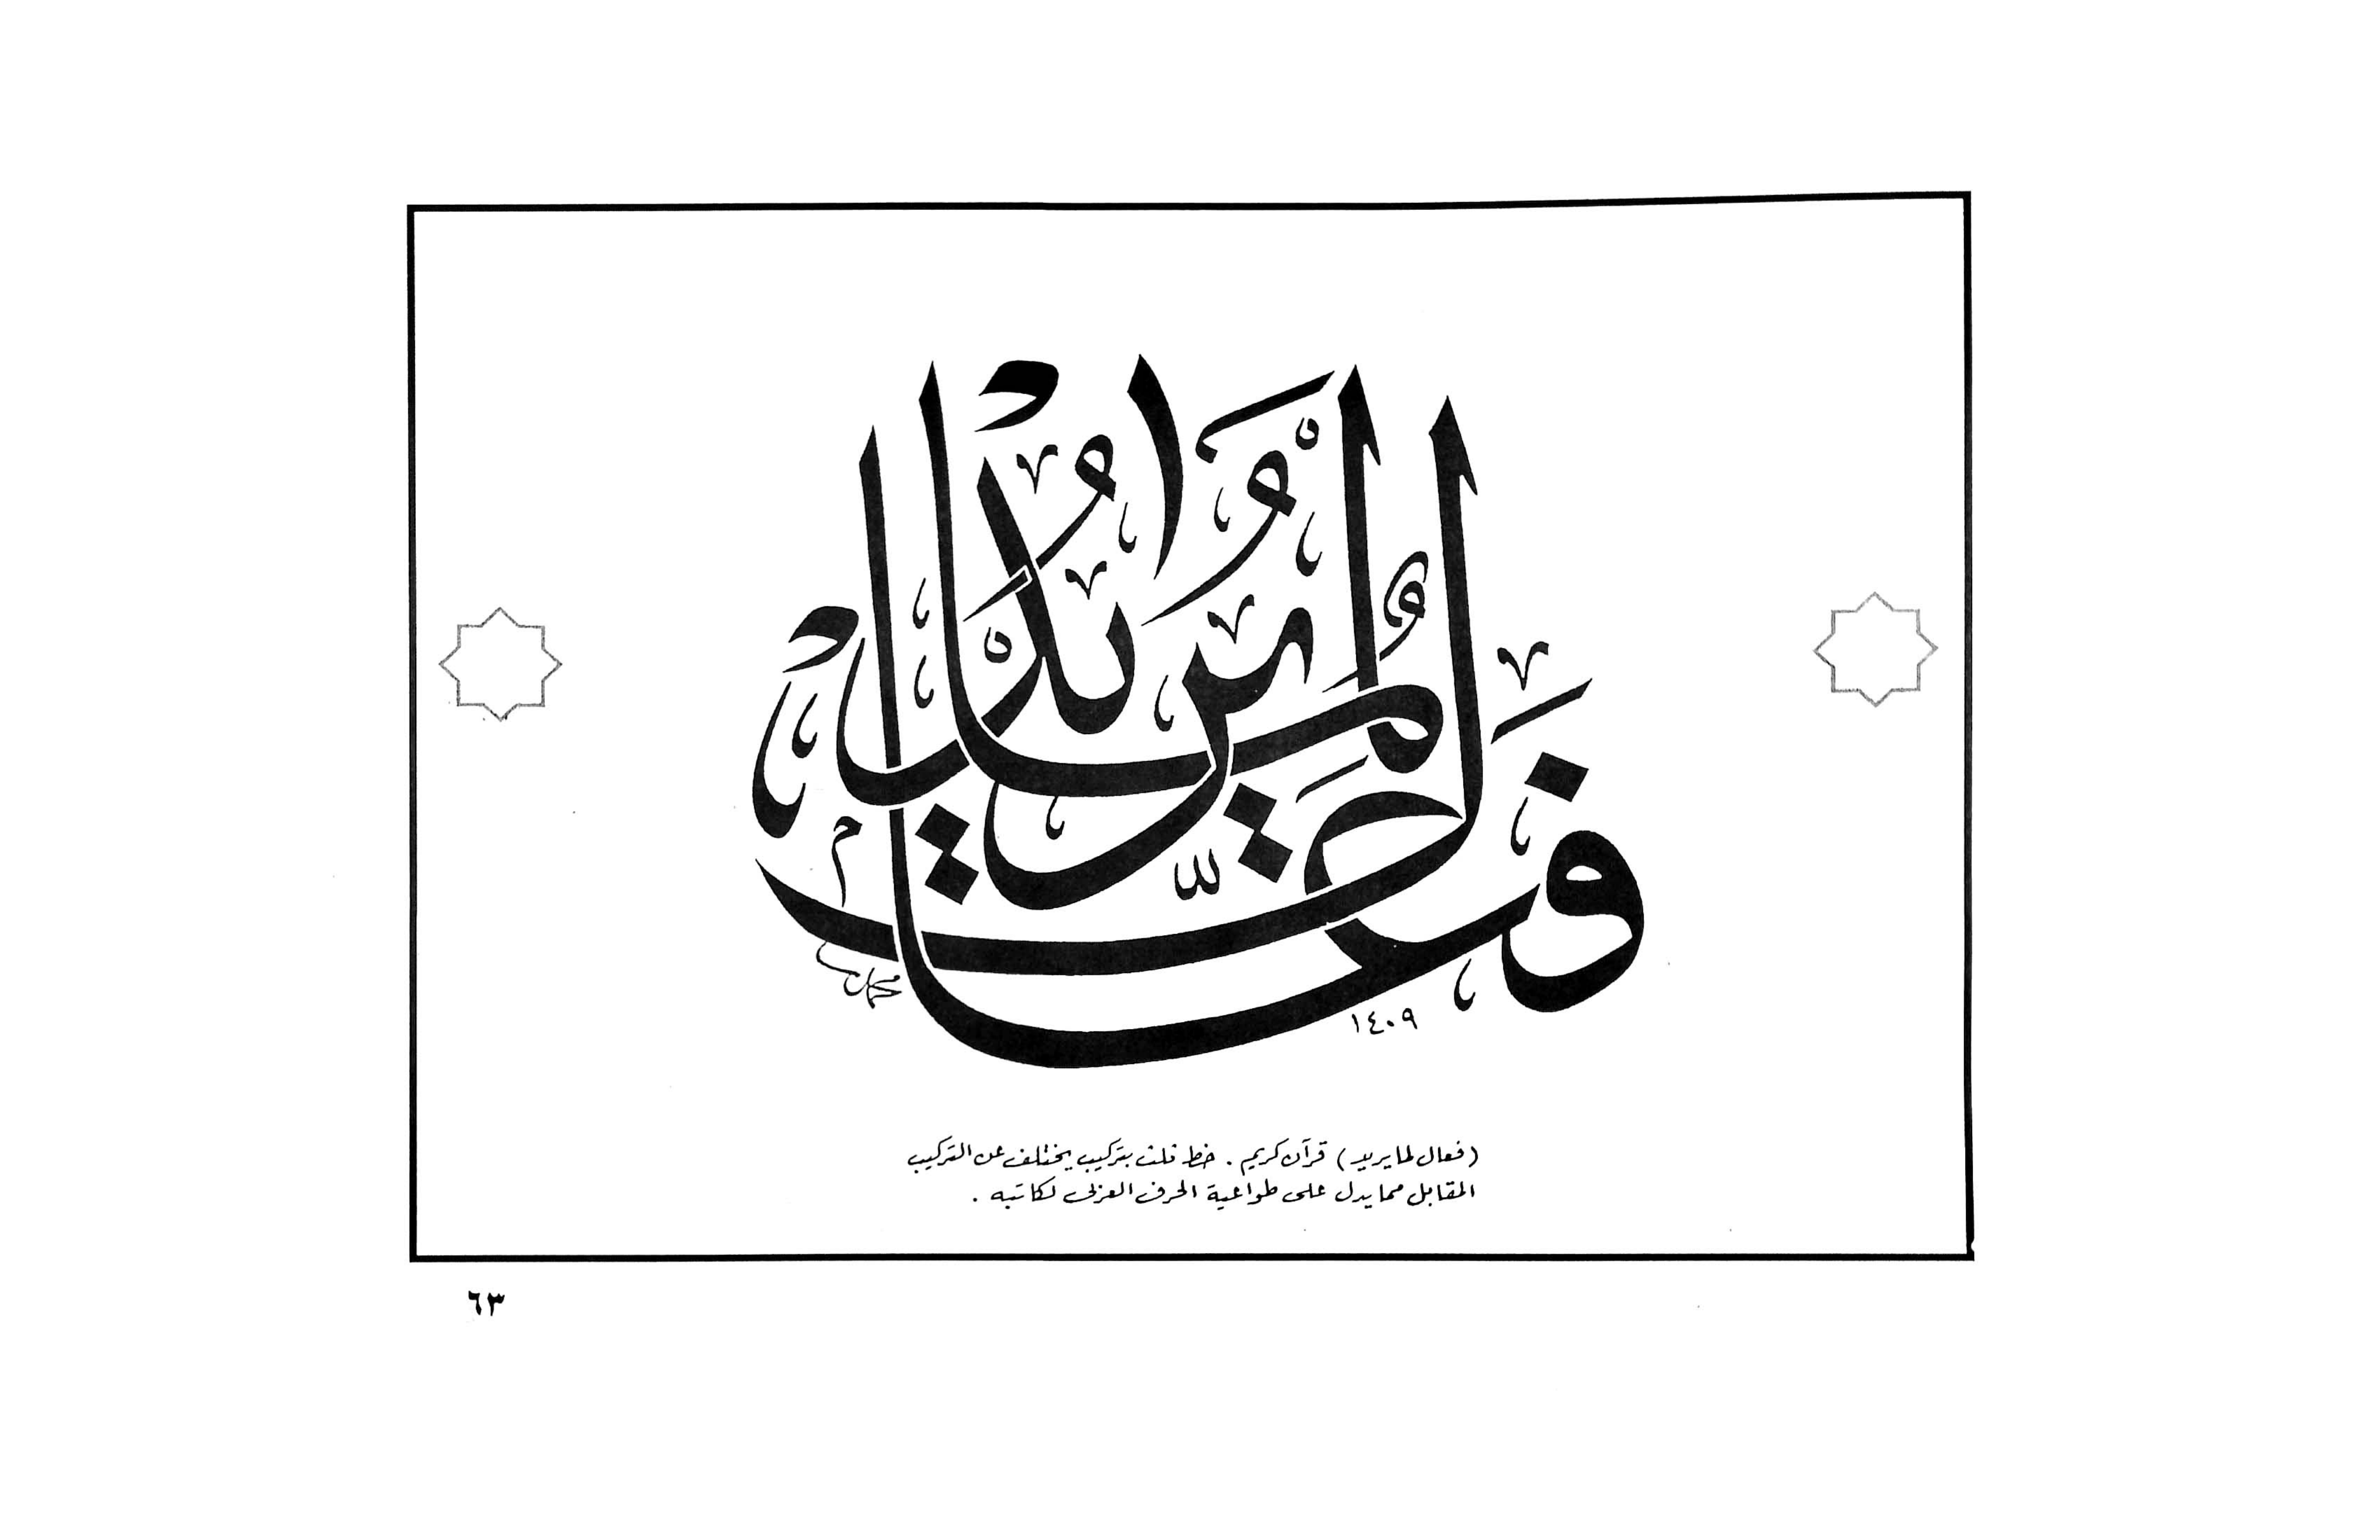 فَعَّالٌ لِمَا يُرِيدُ
محمد
١٤٠٩
(فعال لما يريد) قرآن كريم . خط ثلث بتركيب يختلف عن التركيب
المقابل مما يدل على طواعية الحرف العربي لكاتبه .
٦٣